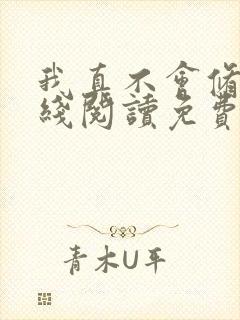 我真不會
綫閱讀免費
青木U平